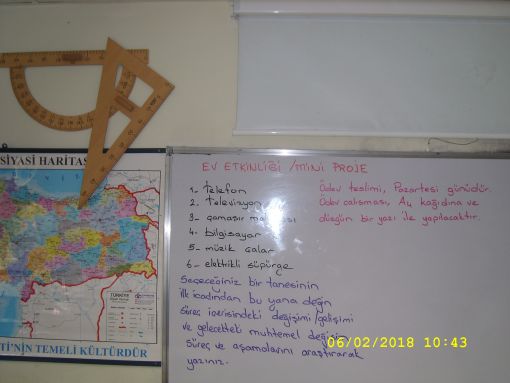 SİYASİ HARİTAS
TÜRKİYE
Tİ'NİN TEMELİ KÜLTÜRDÜR
EV ETKİNLİĞİ / MİNİ PROJE
1- telefon
2. televizyon
3- çamaşır ma sı
4- bilgisayar
5- müzik çalar
6- elektrikli süpürge
Ödev teslimi, Pazartesi günüdür.
Ödev çalışması, A4 kağıdına ve
düzgün bir yazı ile yapılacaktır.
Seçeceğiniz bir tanesinin
ilk icadından bu yana değin
Süreç içerisindeki değişimi/gelişimi
ve gelecekteki muhtemel değişim
Süreç ve aşamalarını araştırarak
yazınız.
06/02/2018 10:43